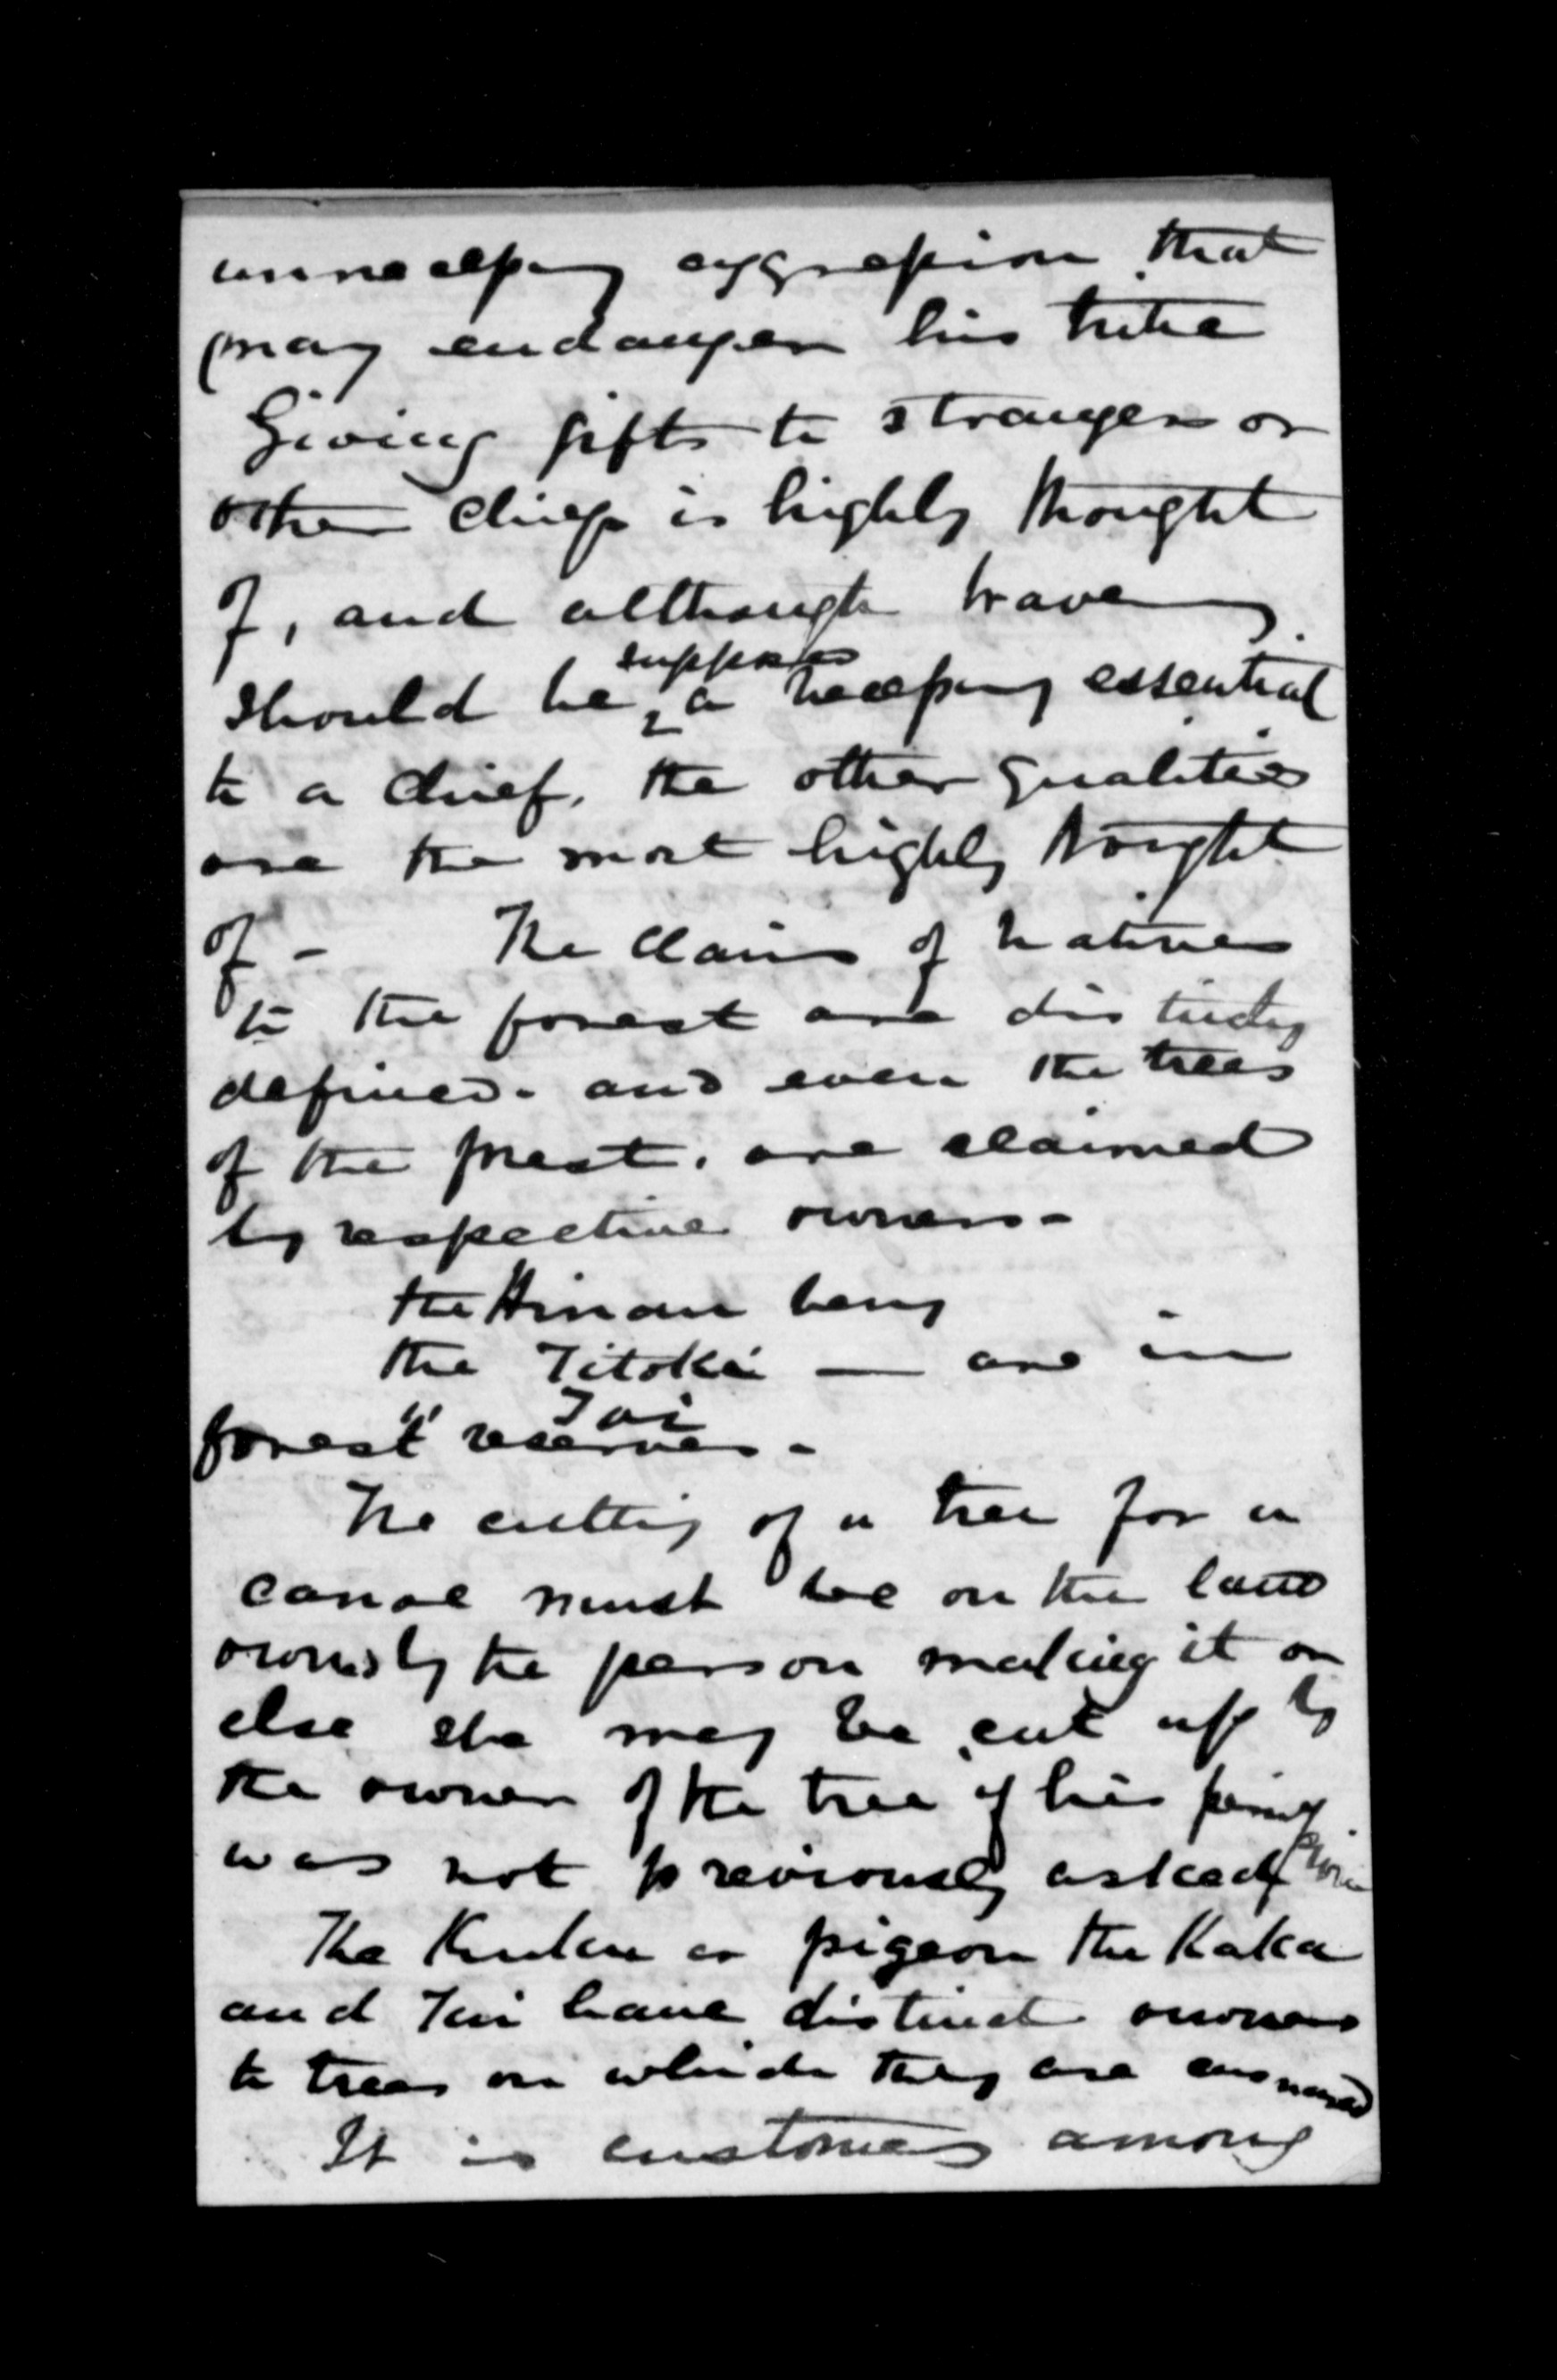 unnecessary aggression that
may endanger his tribe
Giving gifts to strangers or
other chiefs is highly thought
of, and although bravery
supposed
should be a necessary essential
to a chief, the other qualities
are the most highly thought
of - The claims of natives
to the forest are distinctly
defined. and even the trees
of the forest. are claimed
by respective owners -
the Hinau berry
the Titoki — are in
" Toi
forest reserves -
The cutting of a tree for a
canoe must be on the land
owned by the person making it or
else she may be cut up by
the owner of the tree if his permis
sion
was not previously asked
The Kuku or pigeon the Kaka
and Tui have distinct owners
to trees on which they are ensnared
It is customary among